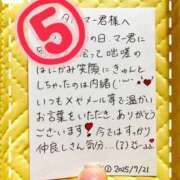 ⑤
マー君様へ
の日 マー君に
って 咄嗟の
はにかみ実際にきゅんと
しちゃったのは内緒(´`)♥
いつもメやメール等で温かい
お言葉をいただき、ありがとう
ございます❢今ではすっかり
仲良しさん気分…(?)
① 2025/7/21